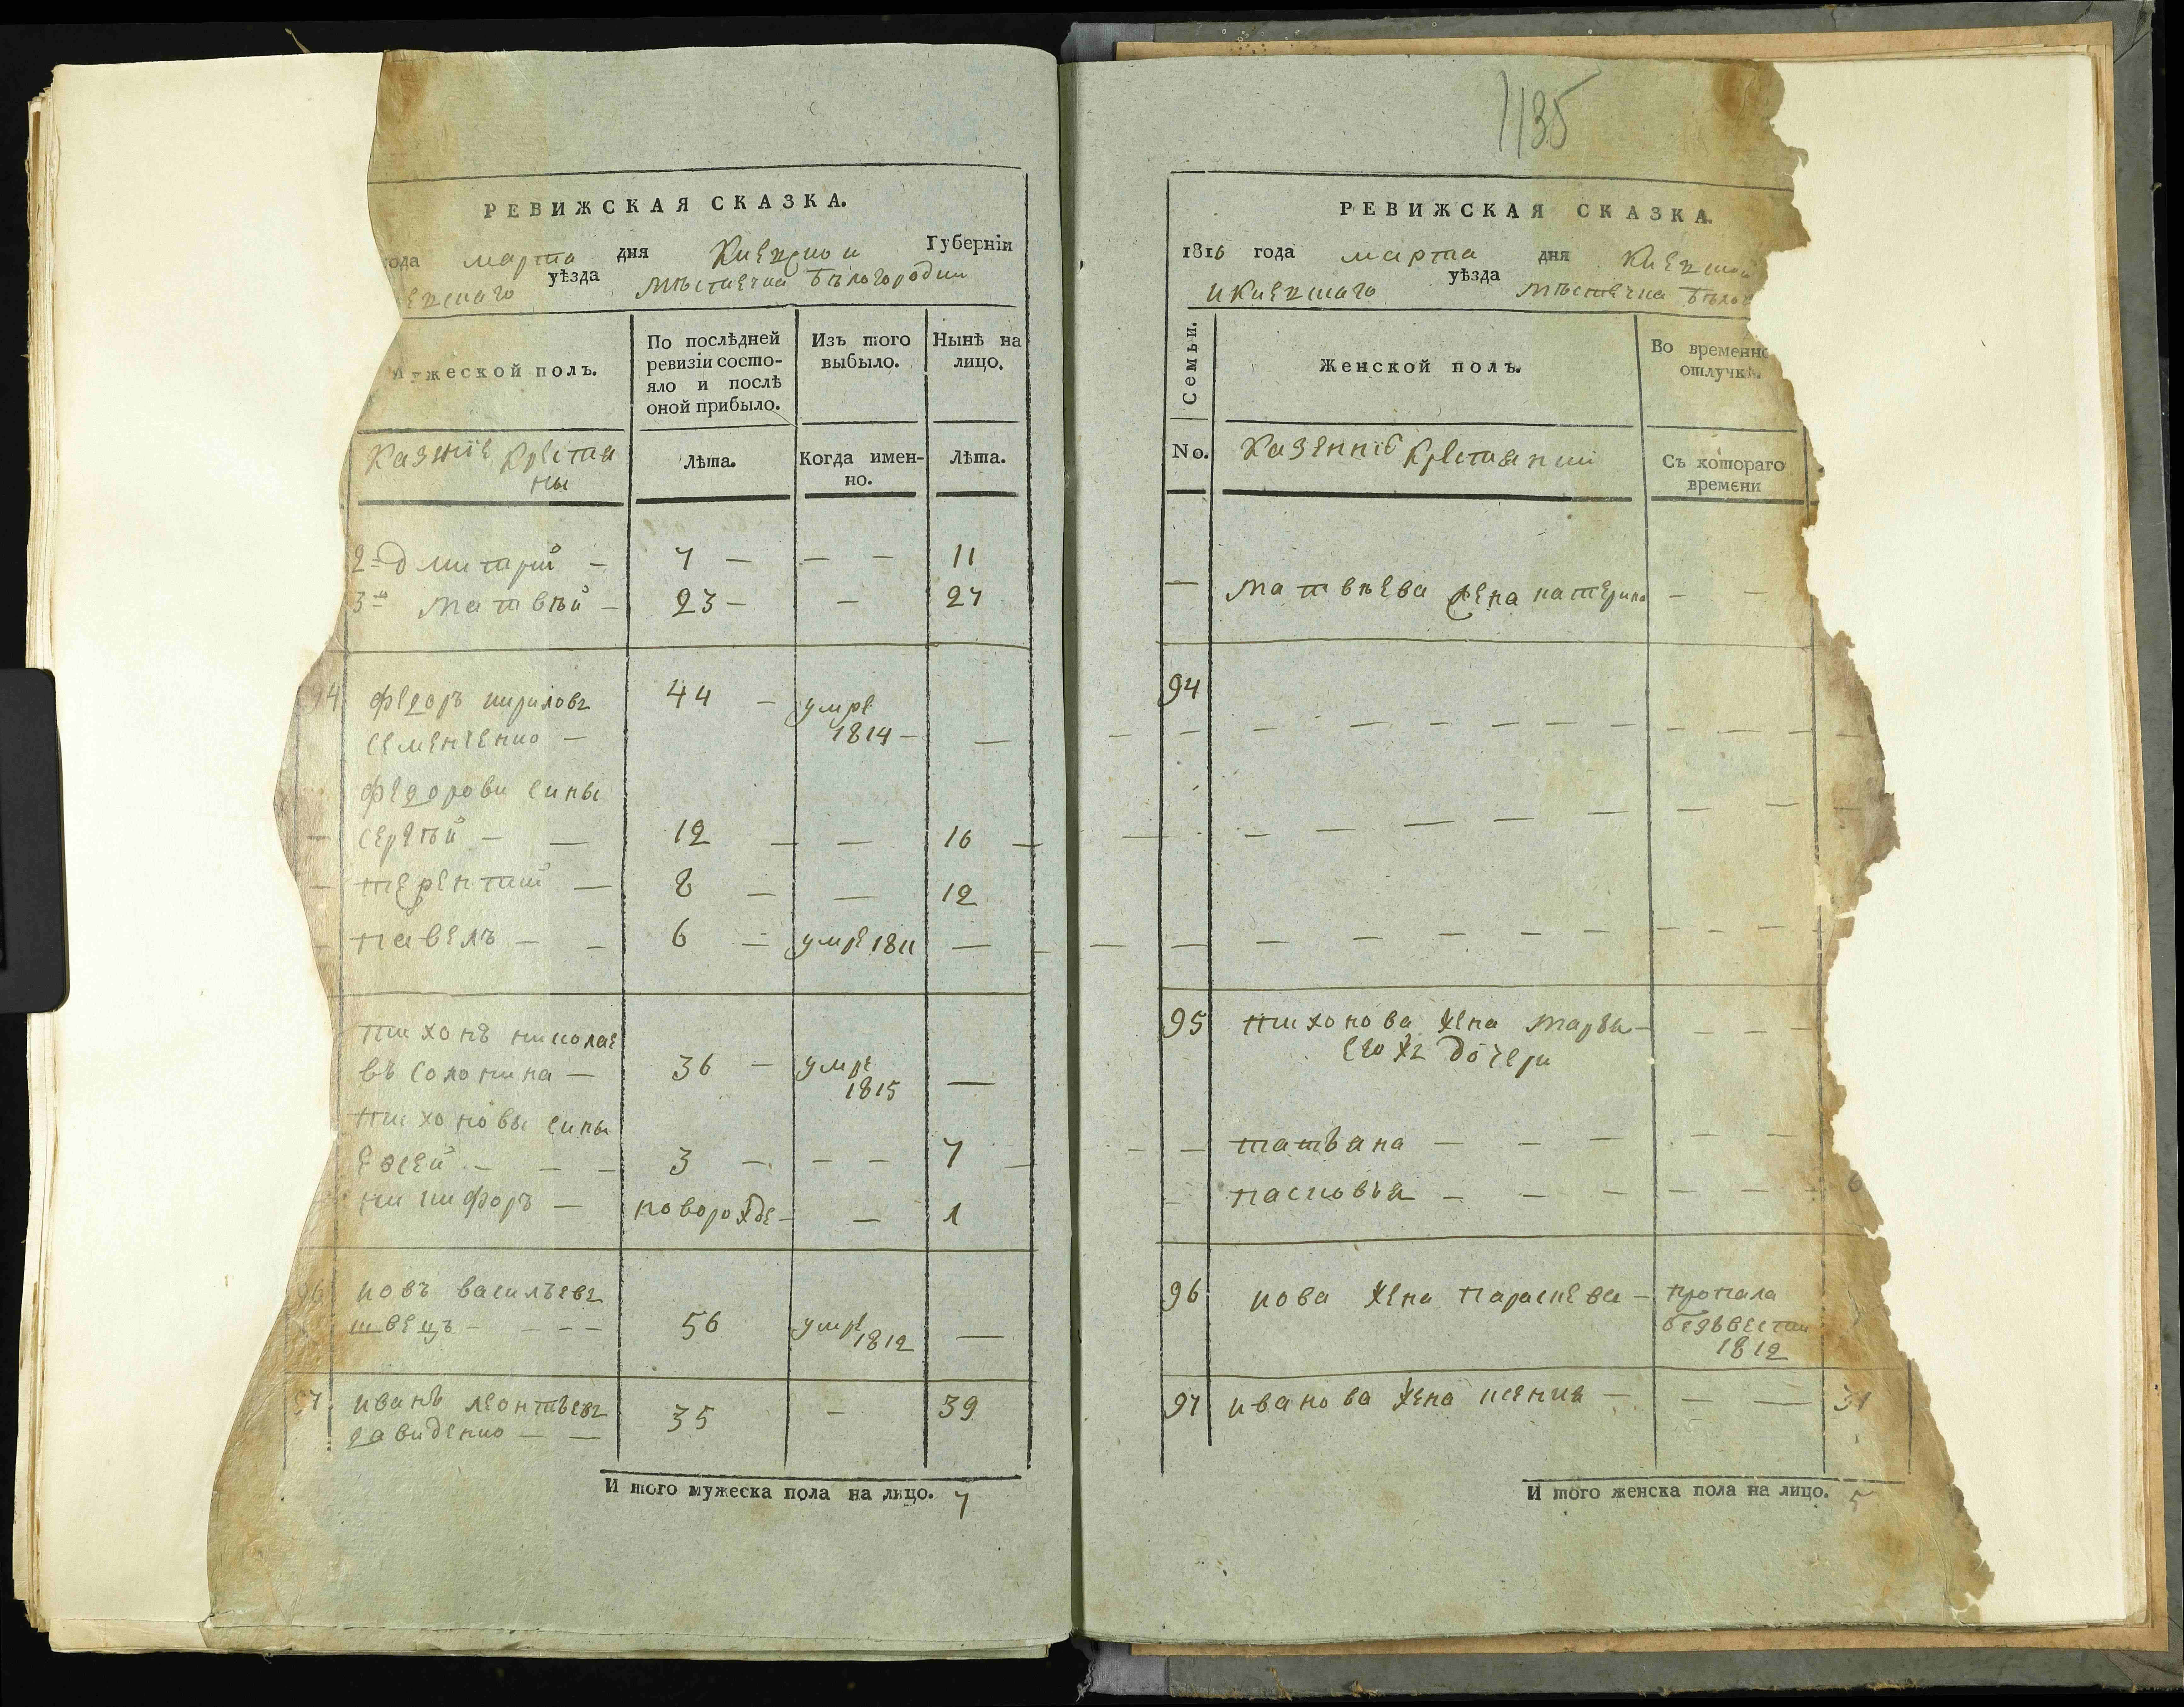 РЕВИЖСКАЯ СКАЗКА.
года марта дня Киевской Губерніи
уѣзда мѣстечка Бѣлогородки
жеской полъ.
По послѣдней
ревизіи состо-
яло и послѣ
оной прибыло.
Изъ того
выбыло.
Нынѣ на
лицо.
Казеніе крестья
ны
Лѣта.
Когда имен-
но.
Лѣта.
2й дмитрій — 7 — — — 11
3й матвѣй — 23 — — 27
94 федоръ кириловъ 44 — умре
семенченко — 1814 — —
федорови сины
сергѣй — — 12 — — 16 —
терентій — 8 — — 12
павелъ — — 6 — умре 1811 —
тихонъ николае
въ солонина — 36 — умре
1815 —
тихонови сины
евсей — — — 3 — — — 7 —
никифоръ — новорожде — — 1
96 иовъ васильевъ
швецъ — — — — 56 умре
1812 —
97 иванъ леонтьевъ 35 — 39
давиденко — —
И того мужеска пола на лицо. 7
1135
РЕВИЖСКАЯ СКАЗКА.
1816 года марта дня Киевской
и Киевскаго уѣзда мѣстечка
Семьи.
Женской полъ.
Во временно
отлучкѣ.
No.
Казенніе крестьянки
Съ котораго
времени
— матвѣева жена катерина — —
94
95 тихонова жена марья — — — —
его жъ дочери
— — татьяна — — — — — —
— пасковья — — — — — — —
96 иова жена параскева — пропала
безъвести
1812
97 иванова жена ксения — — — 31
И того женска пола на лицо. 5